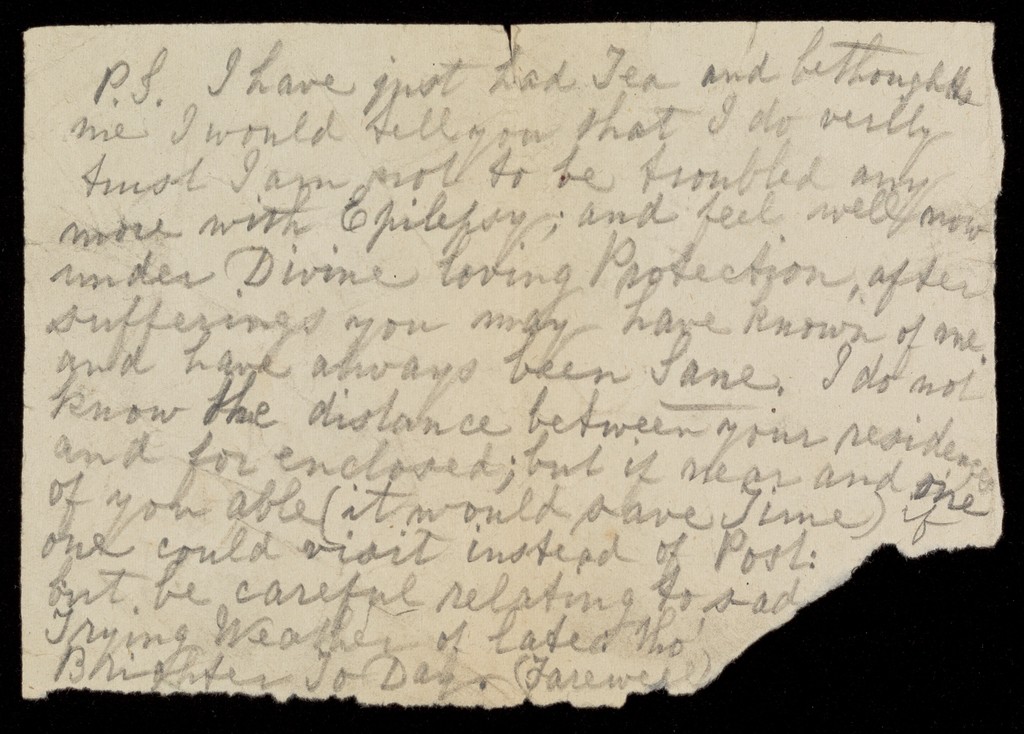 P.S. I have just had Tea and bethought
me I would tell you that I do verily
trust I am not to be troubled any
more with Epilepsy; and feel well now
under Divine loving Protection, after
sufferings you may have known of me.
and have always been Sane. I do not
know the distance between your residences
and for enclosed; but if near and one
of you able (it would save Time) if
one could visit instead of Post:
but, be careful relating to sad
Trying Weather of late: tho'
Brighter To Day. (Farewell)